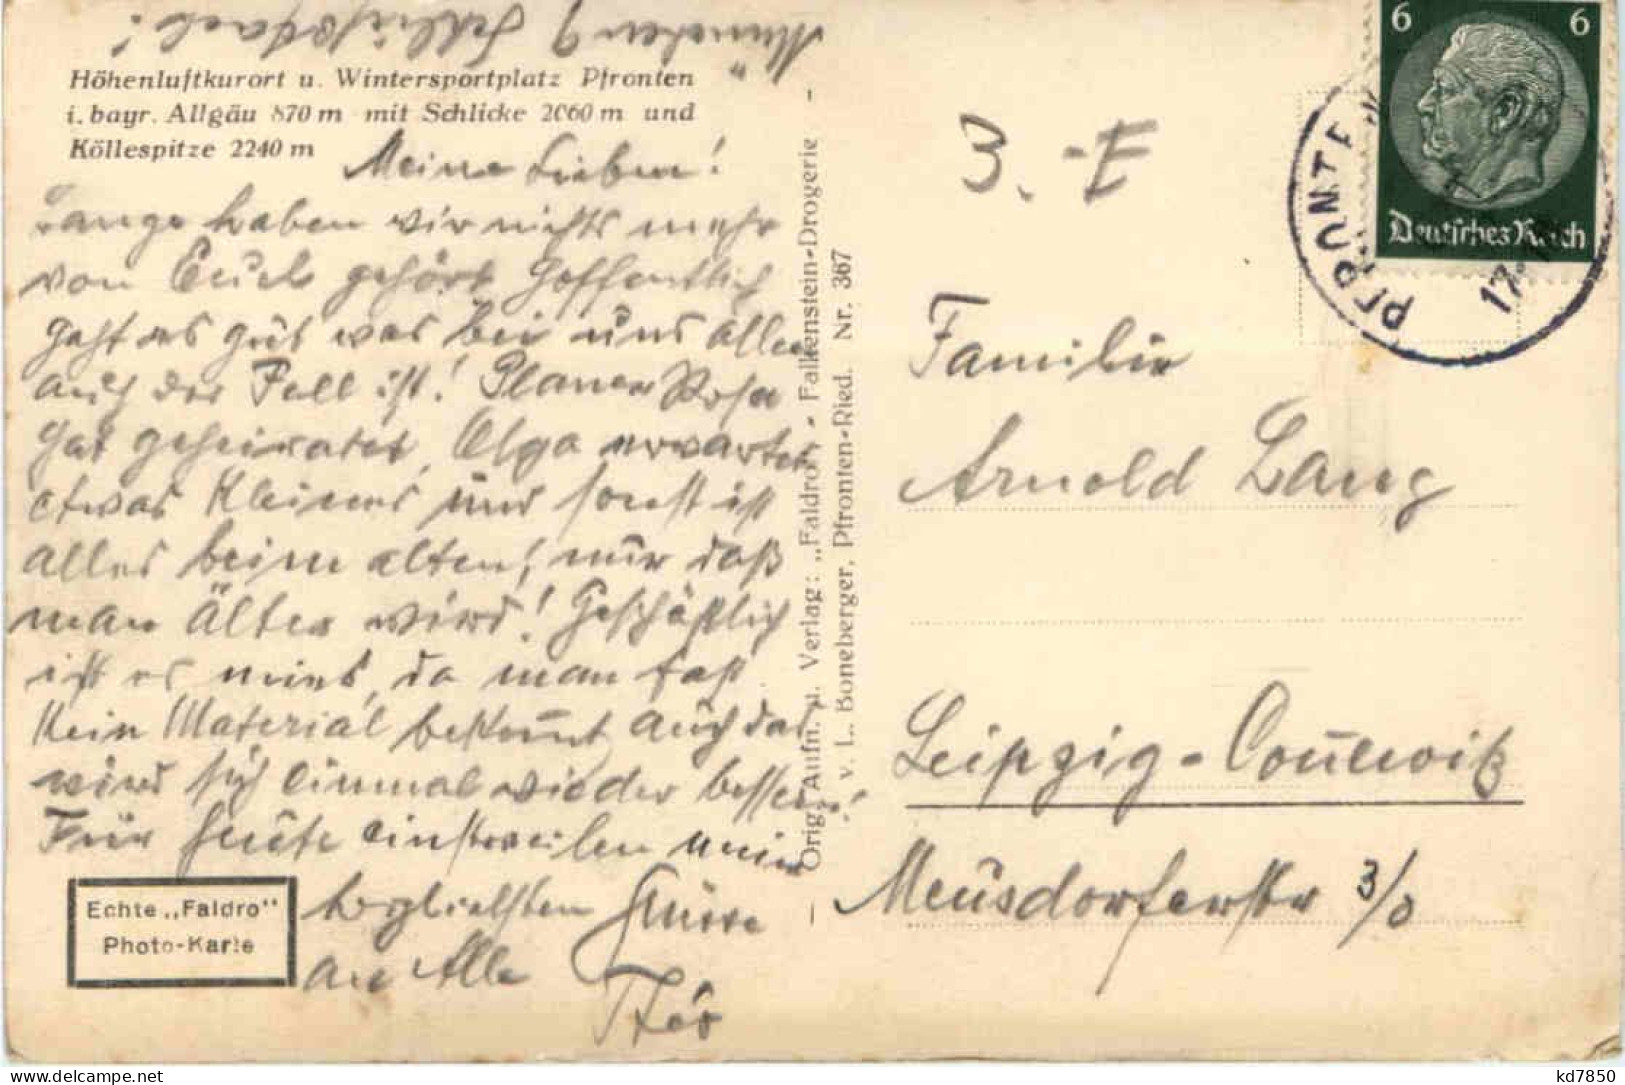 München 9 Schließfach !
Höhenluftkurort u. Wintersportplatz Pfronten
i. bayr. Allgäu 870 m mit Schlicke 2060 m und
Köllespitze 2240 m
Meine Lieben!
Lange haben wir nichts mehr
von Euch gehört hoffentlich
geht es gut was bei uns allen
auch der Fall ist! Planer Rosa
hat geheiratet, Olga erwartet
etwas Kleines und sonst ist
alles beim alten, nur daß
man Älter wird! Geschäftlich
ist es mies, da man fast
kein Material bekommt auch das
wird sich einmal wieder bessern!
Für heute einstweilen meine
herzlichsten Grüsse
an Alle
Echte „Faldro"
Photo-Karte
Orig. Aufn. u. Verlag: „Faldro" - Falkenstein-Drogerie -
v. L. Boneberger, Pfronten-Ried. Nr. 367
3. -E
6 6
Deutsches Reich
PFRONTEN
17
Familie
Arnold Lang
Leipzig-Connewitz
Meusdorferstr 3/0